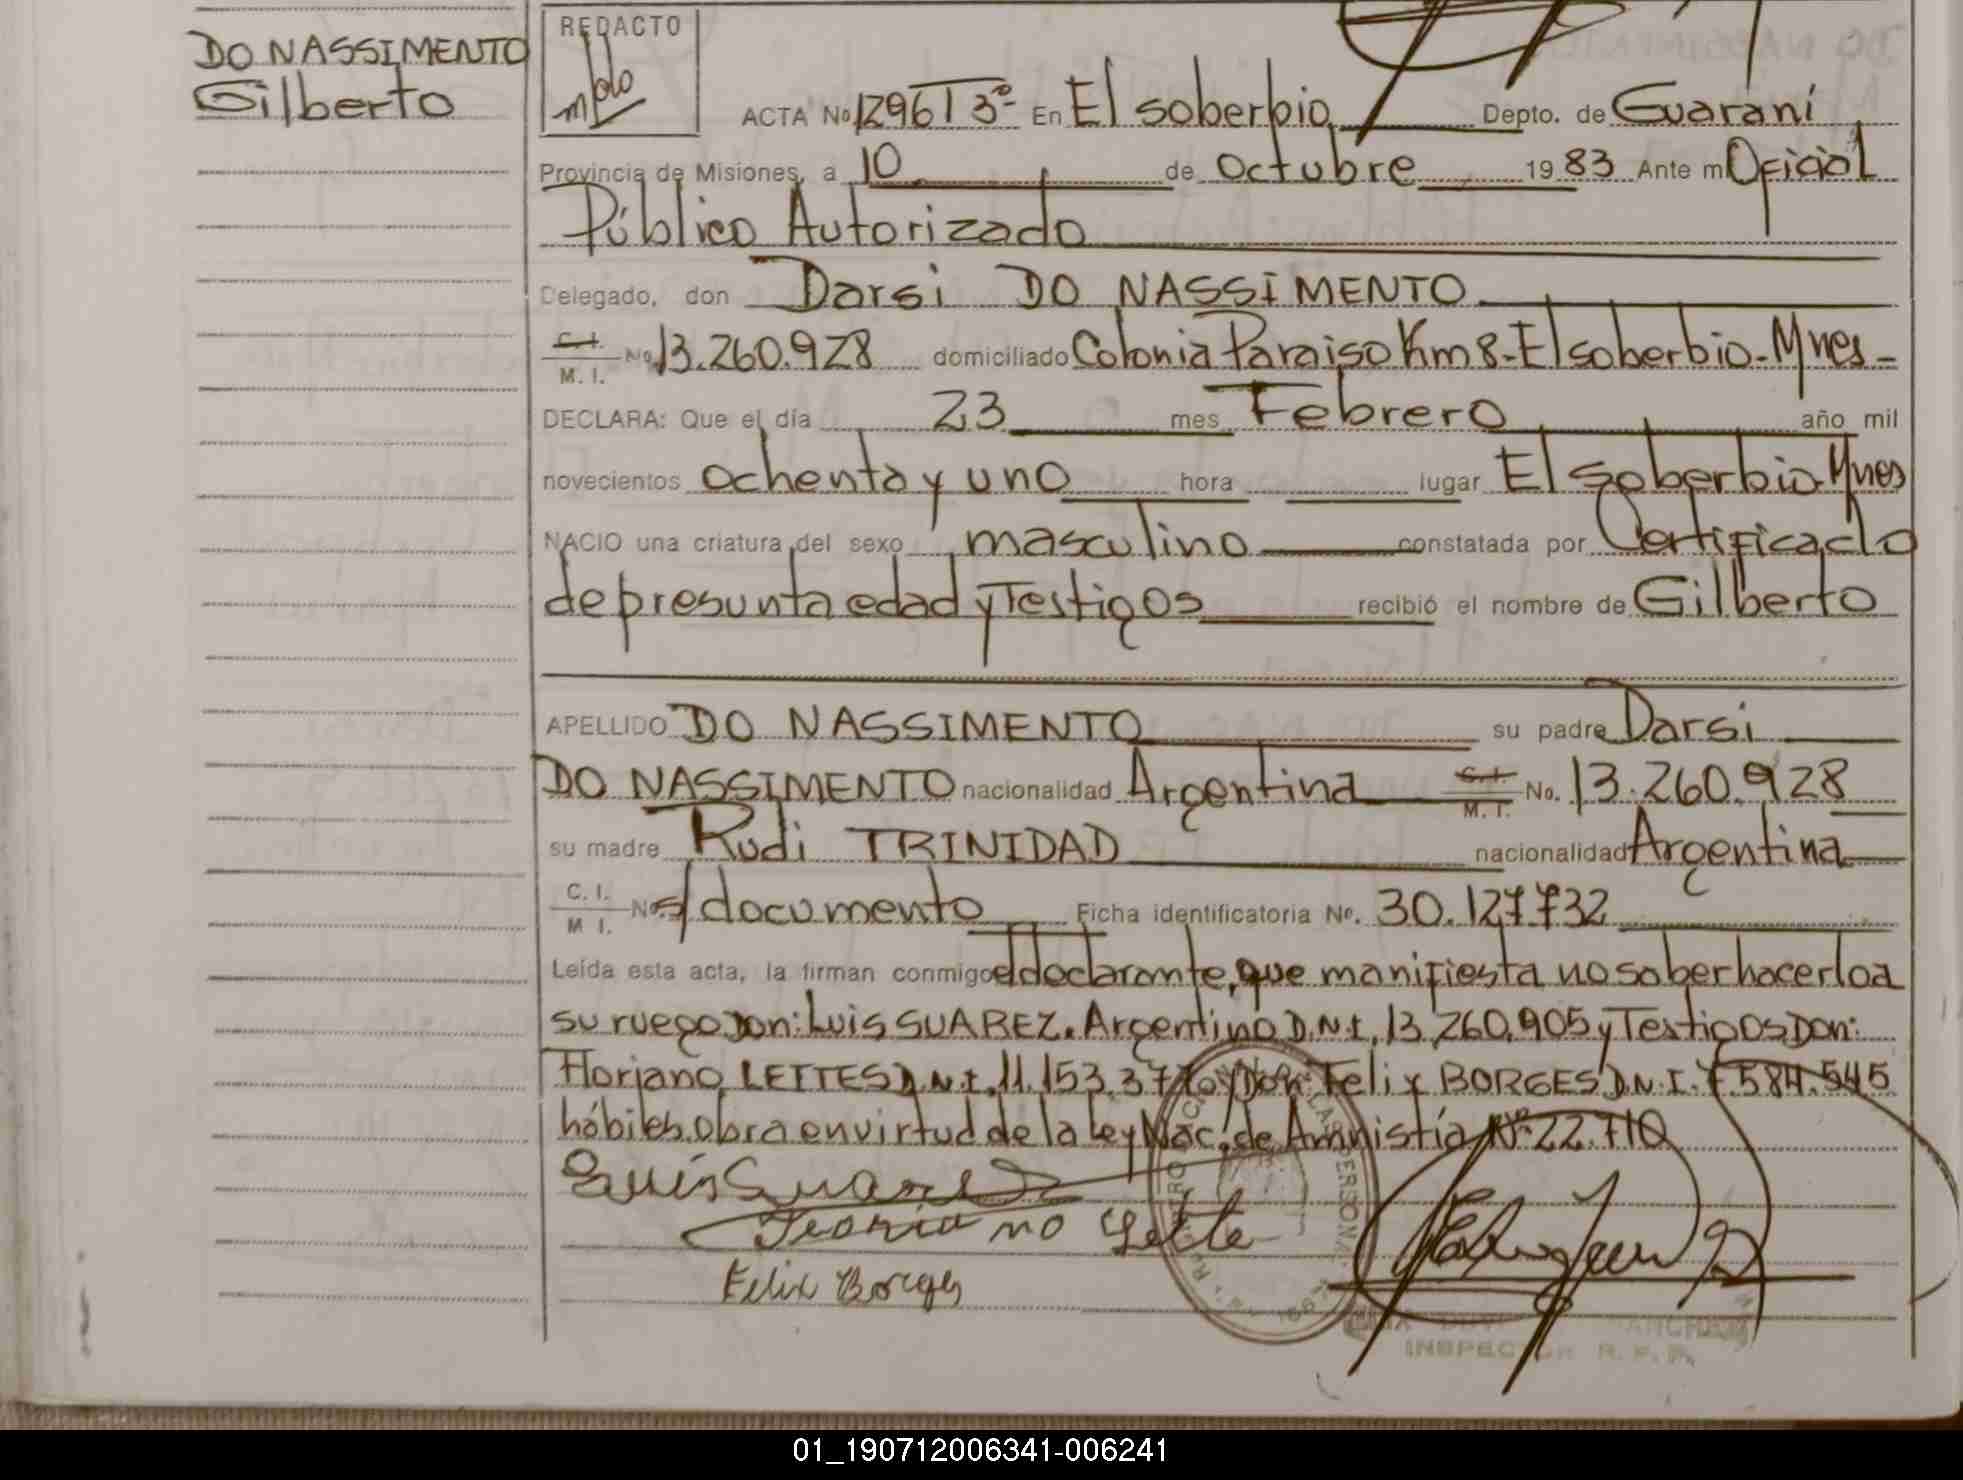 DO NASSIMENTO
Gilberto
REDACTO
ACTA No 1296 T 3º En El soberbio Depto. de Guaraní
Provincia de Misiones, a 10 de octubre 1983 Ante mi Oficial
Público Autorizado
Delegado, don Darsi DO NASSIMENTO
C. I. M. I. No. 13.260.928 domiciliado Colonia Paraiso Km 8-El soberbio-Mnes-
DECLARA: Que el día 23 mes Febrero año mil
novecientos ochenta y uno hora lugar El soberbio-Mnes
NACIO una criatura del sexo masculino constatada por Certificado
de presunta edad y Testigos recibió el nombre de Gilberto
APELLIDO DO NASSIMENTO su padre Darsi
DO NASSIMENTO nacionalidad Argentina C. I. M. I. No. 13.260.928
su madre Rudi TRINIDAD nacionalidad Argentina
C. I. M. I. No. s/documento Ficha identificatoria No. 30.127732
Leída esta acta, la firman conmigo el declarante, que manifiesta no saber hacerlo a
su ruego Don: Luis SUAREZ. Argentino D.N.I. 13.260.905 y Testigos Don:
Floriano LEITES D.N.I. 11.153.37 y Don: Felix BORGES D.N.I. 7.584.545
hábiles. obra en virtud de la ley Nac. de Amnistía Nº 22.710
Luis Suarez
no Leite
Felix Borges
INSPECTOR R. P. P.
01_190712006341-006241